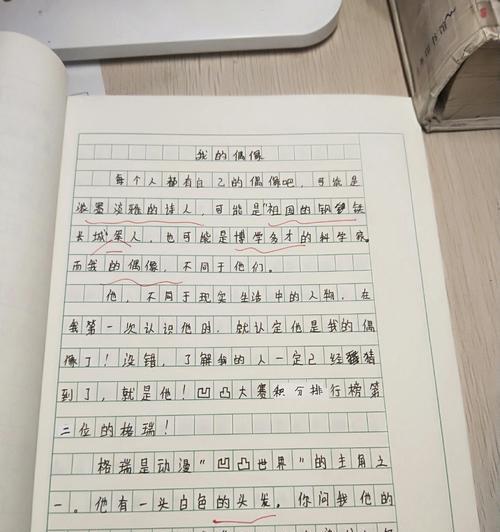 我的偶像
每个人都有自己的偶像吧，可能是
淡墨淡雅的诗人，可能是“祖国的钢铁
长城”军人，也可能是博学多才的科学家。
而我的偶像，不同于他们。
他，不同于现实生活中的人物，在
我第一次认识他时，就认定他是我的偶
像了！没错，了解我的人一定已经猜
到了，就是他！凹凸大赛积分排行榜第
二位的格瑞！
格瑞是动漫“凹凸世界”的主角之
一。他有一头白色的头发，你问我他的